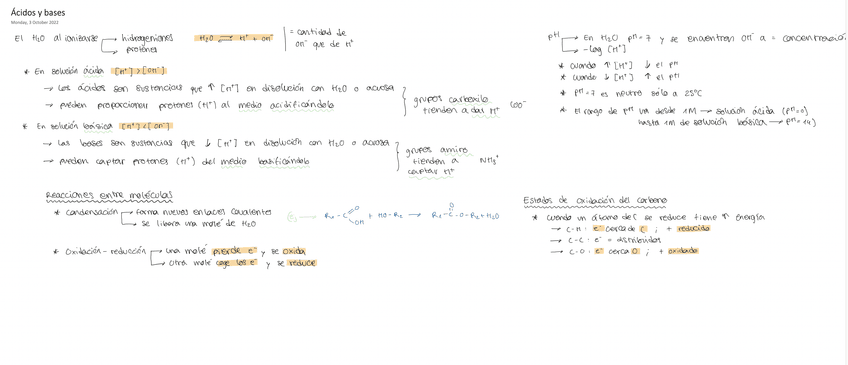 Ácidos y bases
Monday, 3 October 2022
El H₂O al ionizarse → hidrogeniones
→ protones
H₂O ⇌ H⁺ + OH⁻
= cantidad de
OH⁻ que de H⁺
* En solución ácida [H⁺] > [OH⁻]
→ Los ácidos son sustancias que ↑ [H⁺] en disolución con H₂O o acuosa
→ pueden proporcionar protones (H⁺) al medio acidificándolo
grupos carboxilo
tienden a dar H⁺ COO⁻
* En solución básica [H⁺] < [OH⁻]
→ Las bases son sustancias que ↓ [H⁺] en disolución con H₂O o acuosa
→ pueden captar protones (H⁺) del medio basificándolo
grupos amino
tienden a
captar H⁺
NH₃⁺
Reacciones entre moléculas
* Condensación → forma nuevos enlaces covalentes
→ se libera una moléc de H₂O
→ R₁-C=O OH + HO-R₂ → R₁-C(=O)-O-R₂ + H₂O
* Oxidación-reducción → una moléc pierde e⁻ y se oxida
→ Otra moléc coge los e⁻ y se reduce
pH → En H₂O pH = 7 y se encuentran OH⁻ a = concentración
→ -log [H⁺]
* Cuando ↑ [H⁺] ↓ el pH
* Cuando ↓ [H⁺] ↑ el pH
* pH = 7 es neutro sólo a 25°C
* El rango de pH va desde 1M → solución ácida (pH=0)
hasta 1M de solución básica → pH=14)
Estados de oxidación del carbono
* Cuando un átomo de C se reduce tiene ↑ energía
→ C-H: e⁻ cerca de C ; + reducido
→ C-C: e⁻ = distribuidos
→ C-O: e⁻ cerca O ; + oxidado